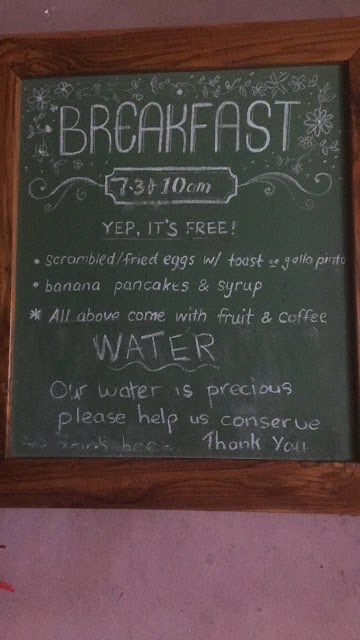 BREAKFAST
7.30 10am
YEP, IT'S FREE!
• scrambled/fried eggs w/ toast or gallo pinto
• banana pancakes & syrup
* All above come with fruit & coffee
WATER
Our water is precious
please help us conserve
drink beer Thank You